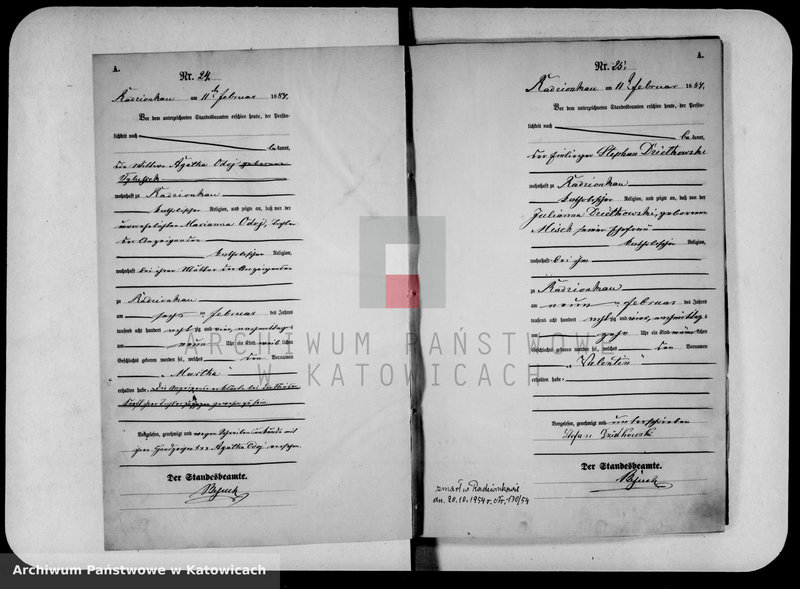 A.
Nr. 24.
Radzionkau am 11 ten Februar 1884.
Vor dem unterzeichneten Standesbeamten erschien heute, der Persön-
lichkeit nach
bekannt,
die Wittwe Agatha Odoj geborene
wohnhaft zu Radzionkau
katholischer Religion, und zeigte an, daß von der
unverehelichten Marianna Odoj, Tochter
der Anzeigenden
katholischer Religion,
wohnhaft bei ihrer Mutter der Anzeigenden
zu Radzionkau
am Februar des Jahres
tausend acht hundert achtzig und vier, nachmittags
um neun Uhr ein Kind weiblichen
Geschlechts geboren worden sei, welches den Vornamen
Martha
erhalten habe.
Vorgelesen, genehmigt und wegen Schreibensunkunde mit
ihrem Handzeichen Agatha Odoj versehen.
Der Standesbeamte.
A.
Nr. 25.
Radzionkau am 11 Februar 1884.
Vor dem unterzeichneten Standesbeamten erschien heute, der Persön-
lichkeit nach
bekannt,
der Stephan Dziatkowski
wohnhaft zu Radzionkau
katholischer Religion, und zeigte an, daß von der
Julianna Dziatkowski, geborenen
Misch seiner Ehefrau
katholischer Religion,
wohnhaft bei ihm
zu Radzionkau
am neun Februar des Jahres
tausend acht hundert achtzig und vier, nachmittags
um Uhr ein Kind männlichen
Geschlechts geboren worden sei, welches den Vornamen
Valentin
erhalten habe.
Vorgelesen, genehmigt und unterschrieben
Stefan
Der Standesbeamte.
zmarł w Radzionkowie
dn. 20.10.1954 r. Nr. 170/54
ARCHIWUM PAŃSTWOWE
W KATOWICACH
Archiwum Państwowe w Katowicach